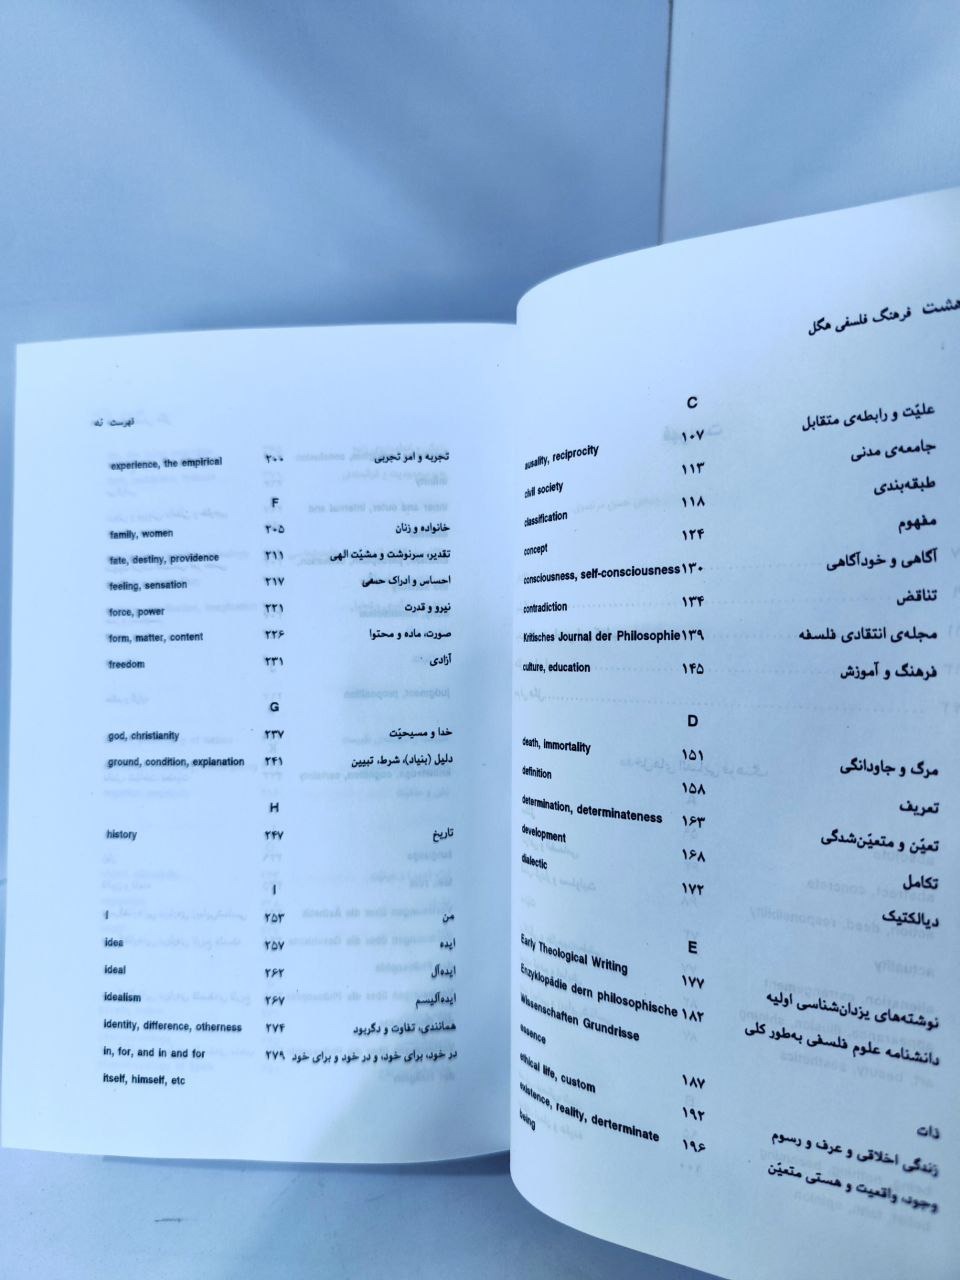 هشت فرهنگ فلسفی هگل
C
علیّت و رابطه‌ی متقابل ۱۰۷ ausality, reciprocity
جامعه‌ی مدنی ۱۱۳ civil society
طبقه‌بندی ۱۱۸ classification
مفهوم ۱۲۴ concept
آگاهی و خودآگاهی ۱۳۰ consciousness, self-consciousness
تناقض ۱۳۴ contradiction
مجله‌ی انتقادی فلسفه ۱۳۹ Kritisches Journal der Philosophie
فرهنگ و آموزش ۱۴۵ culture, education
D
مرگ و جاودانگی ۱۵۱ death, immortality
تعریف ۱۵۸ definition
تعیّن و متعیّن‌شدگی ۱۶۳ determination, determinateness
تکامل ۱۶۸ development
دیالکتیک ۱۷۲ dialectic
E
نوشته‌های یزدان‌شناسی اولیه ۱۷۷ Early Theological Writing
دانشنامه علوم فلسفی به‌طور کلی ۱۸۲ Enzyklopädie dern philosophische
Wissenschaften Grundrisse
ذات ۱۸۷ essence
زندگی اخلاقی و عرف و رسوم ۱۹۲ ethical life, custom
وجود، واقعیت و هستی متعیّن ۱۹۶ existence, reality, derterminate
being
فهرست نه
تجربه و امر تجربی ۲۰۰ experience, the empirical
F
خانواده و زنان ۲۰۵ family, women
تقدیر، سرنوشت و مشیّت الهی ۲۱۱ fate, destiny, providence
احساس و ادراک حسّی ۲۱۷ feeling, sensation
نیرو و قدرت ۲۲۱ force, power
صورت، ماده و محتوا ۲۲۶ form, matter, content
آزادی ۲۳۱ freedom
G
خدا و مسیحیّت ۲۳۷ god, christianity
دلیل (بنیاد)، شرط، تبیین ۲۴۱ ground, condition, explanation
H
تاریخ ۲۴۷ history
I
من ۲۵۳ I
ایده ۲۵۷ idea
ایده‌آل ۲۶۲ ideal
ایده‌آلیسم ۲۶۷ idealism
همانندی، تفاوت و دگربود ۲۷۴ identity, difference, otherness
در خود، برای خود، و در خود و برای خود ۲۷۹ in, for, and in and for
itself, himself, etc